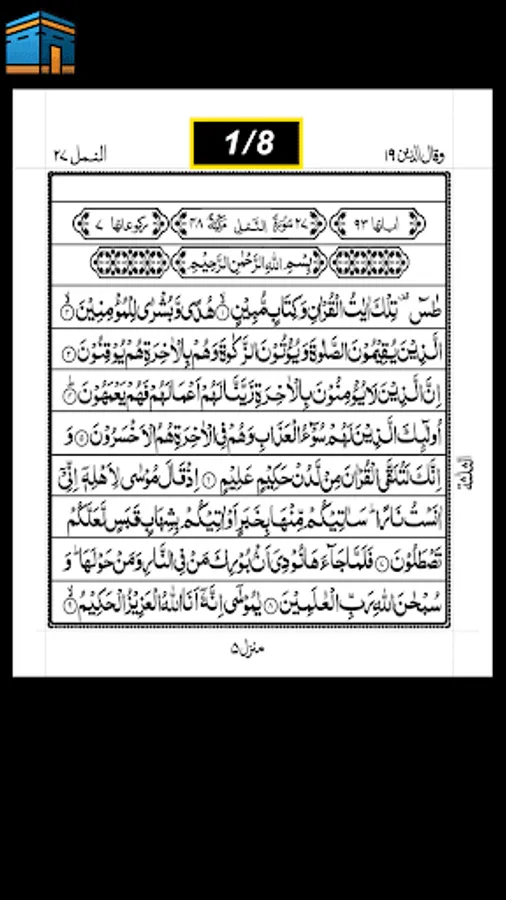 النمل ٢٧
1/8
وقال الذین ١٩
اٰیاتها ٩٣
٢٧ سُوْرَةُ النَّمْلِ مَكِّيَّةٌ ٣٨
رکوعاتها ٧
بِسْمِ اللهِ الرَّحْمٰنِ الرَّحِيْمِ
طٰسٓ تِلْكَ اٰيٰتُ الْقُرْاٰنِ وَكِتَابٍ مُّبِيْنٍ ١ هُدًى وَّبُشْرٰى لِلْمُؤْمِنِيْنَ ٢
الَّذِيْنَ يُقِيْمُوْنَ الصَّلٰوةَ وَيُؤْتُوْنَ الزَّكٰوةَ وَهُمْ بِالْاٰخِرَةِ هُمْ يُوْقِنُوْنَ ٣
اِنَّ الَّذِيْنَ لَا يُؤْمِنُوْنَ بِالْاٰخِرَةِ زَيَّنَّا لَهُمْ اَعْمَالَهُمْ فَهُمْ يَعْمَهُوْنَ ٤
اُولٰٓئِكَ الَّذِيْنَ لَهُمْ سُوْٓءُ الْعَذَابِ وَهُمْ فِى الْاٰخِرَةِ هُمُ الْاَخْسَرُوْنَ ٥ وَ
اِنَّكَ لَتُلَقَّى الْقُرْاٰنَ مِنْ لَّدُنْ حَكِيْمٍ عَلِيْمٍ ٦ اِذْ قَالَ مُوْسٰى لِاَهْلِهٖٓ اِنِّىْٓ
اٰنَسْتُ نَارًا سَاٰتِيْكُمْ مِّنْهَا بِخَبَرٍ اَوْ اٰتِيْكُمْ بِشِهَابٍ قَبَسٍ لَّعَلَّكُمْ
تَصْطَلُوْنَ ٧ فَلَمَّا جَآءَهَا نُوْدِىَ اَنْۢ بُوْرِكَ مَنْ فِى النَّارِ وَمَنْ حَوْلَهَا وَ
سُبْحٰنَ اللهِ رَبِّ الْعٰلَمِيْنَ ٨ يٰمُوْسٰٓى اِنَّهٗٓ اَنَا اللهُ الْعَزِيْزُ الْحَكِيْمُ ٩
الثلٰثة
منزل ۵